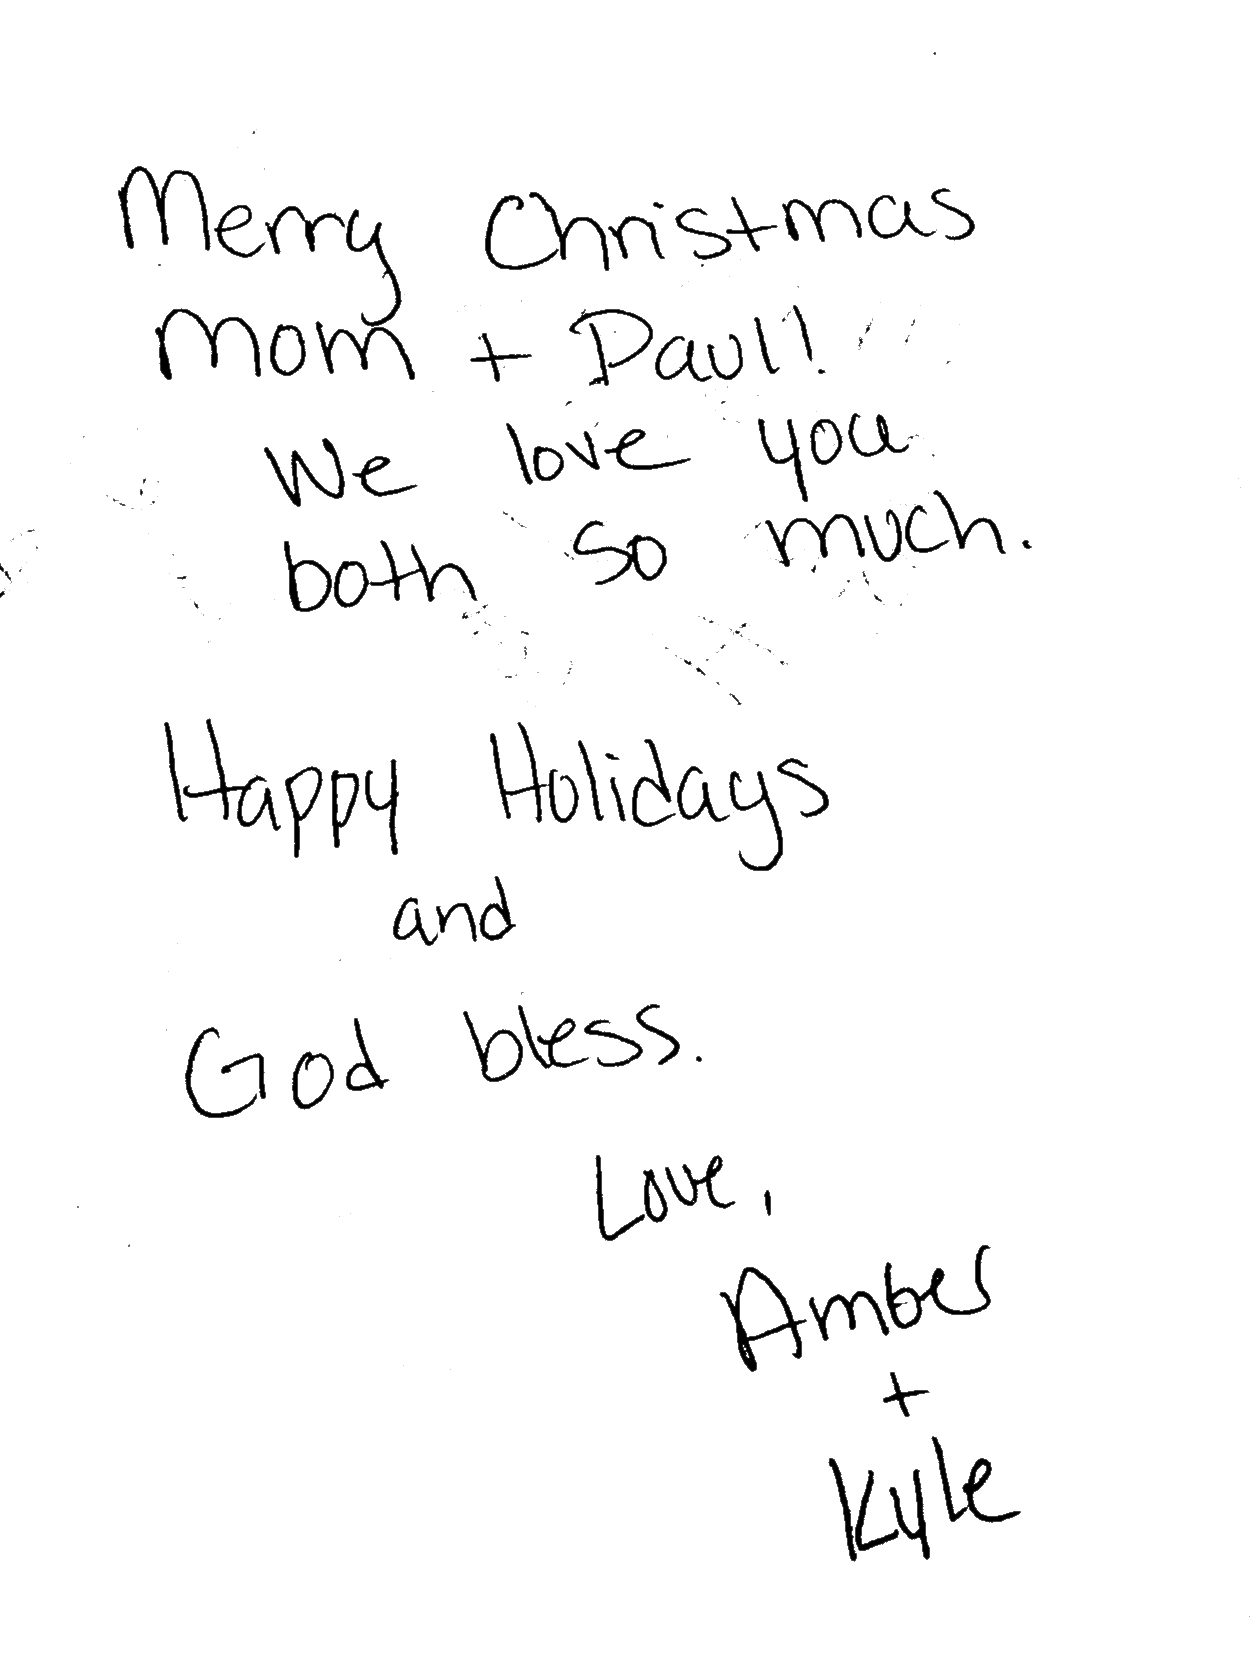 Merry Christmas
Mom + Paul!
We love you
both so much.
Happy Holidays
and
God bless.
Love,
Amber
+
Kyle